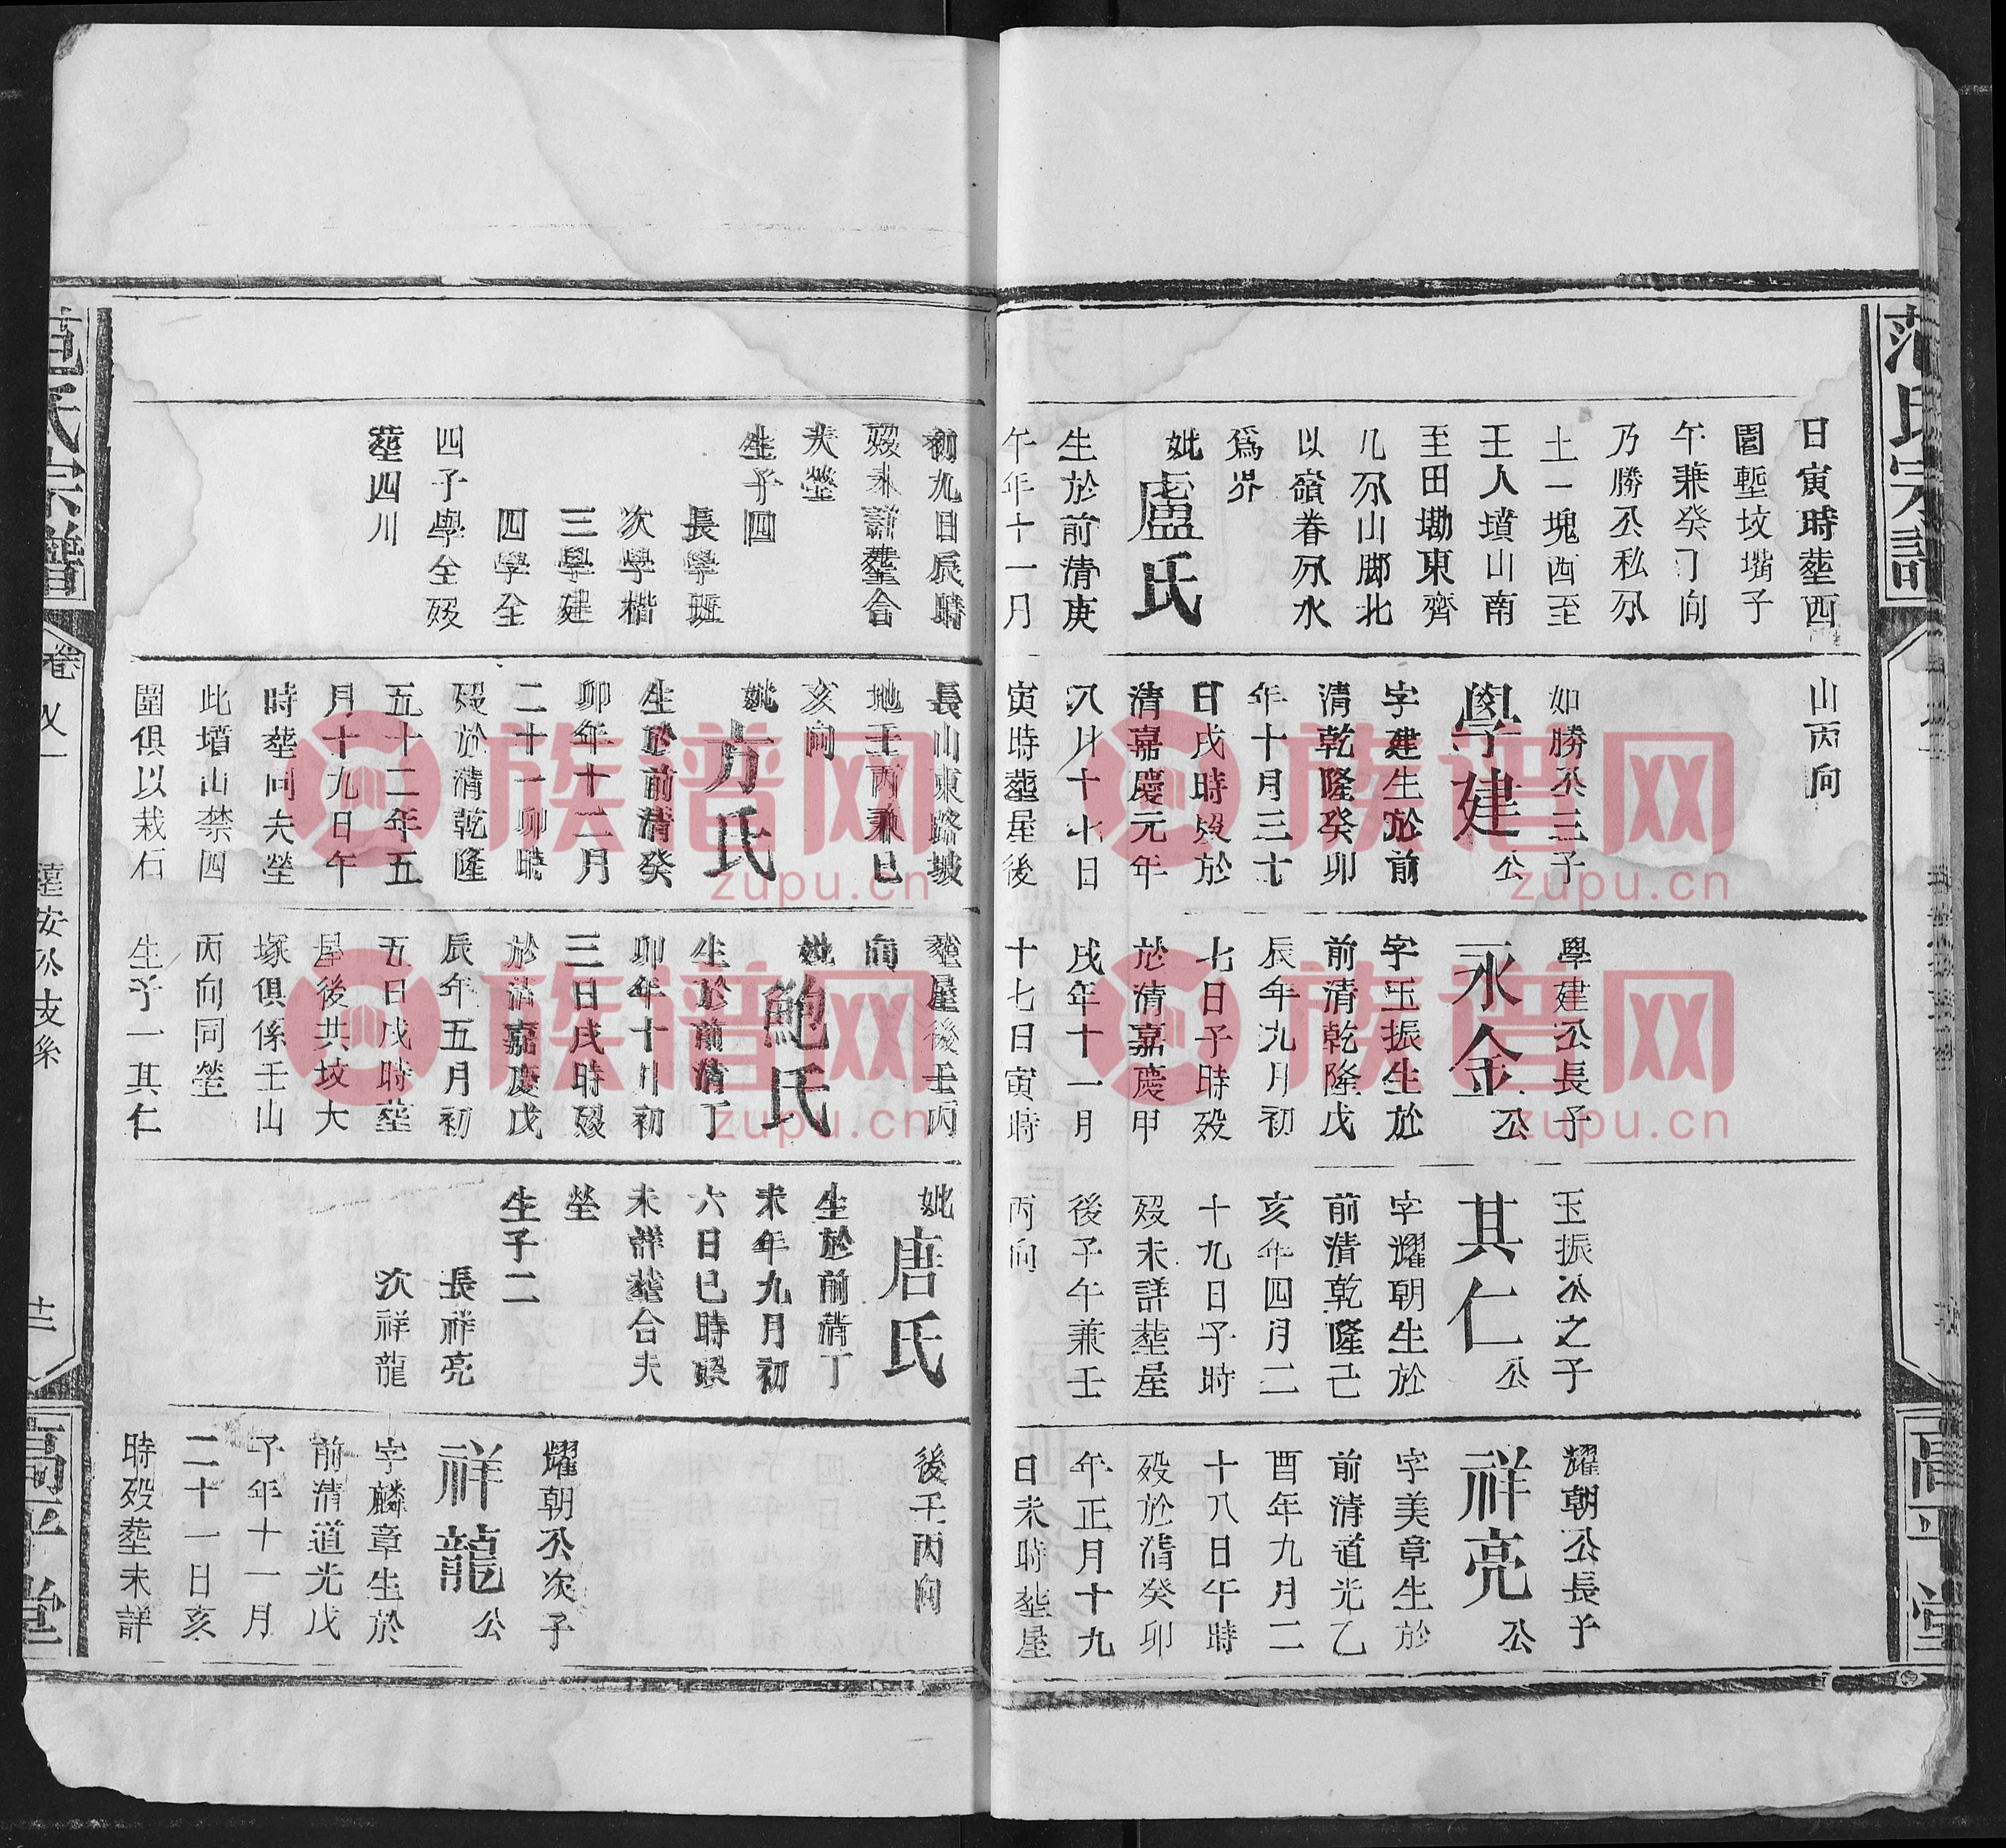 范氏宗譜
高平堂
日寅時塟西
園塹坟嘴子
午兼癸丁向
乃勝公私分
土一塊西至
王人墳山南
至田墈東齊
几分山脚北
以嶺眷分水
爲界
妣盧氏
生於前清庚
午年十一月
山丙向
如勝公三子
學建公
字建生於前
清乾隆癸卯
年十月三十
日戌時歿於
清嘉慶元年
八月十七日
寅時塟屋後
學建公長子
永金公
字玉振生於
前清乾隆戊
辰年九月初
七日子時歿
於清嘉慶甲
戌年十一月
十七日寅時
玉振公之子
其仁公
字耀朝生於
前清乾隆己
亥年四月二
十九日子時
歿未詳塟屋
後子午兼壬
丙向
耀朝公長子
祥亮公
字美章生於
前清道光乙
酉年九月二
十八日午時
歿於清癸卯
年正月十九
日未時塟屋
初九日辰時
歿未詳塟合
夫塋
生子四
長學班
次學楷
三學建
四學全
四子學全歿
塟四川
長山東路坡
地壬丙兼巳
亥向
妣方氏
生於前清癸
卯年十二月
二十一卯時
歿於清乾隆
五十二年五
月十九日午
時塟同夫塋
此墳山禁四
圍俱以栽石
塟屋後壬丙
向
妣鮑氏
生於前清丁
卯年十月初
三日戌時歿
於清嘉慶戊
辰年五月初
五日戊時塟
屋後共坟大
塚俱係壬山
丙向同塋
生子一其仁
妣唐氏
生於前清丁
未年九月初
六日巳時歿
未詳塟合夫
塋
生子二
長祥亮
次祥龍
後壬丙向
耀朝公次子
祥龍公
字麟章生於
前清道光戊
子年十一月
二十一日亥
時歿塟未詳
范氏宗譜
安公支系
高平堂